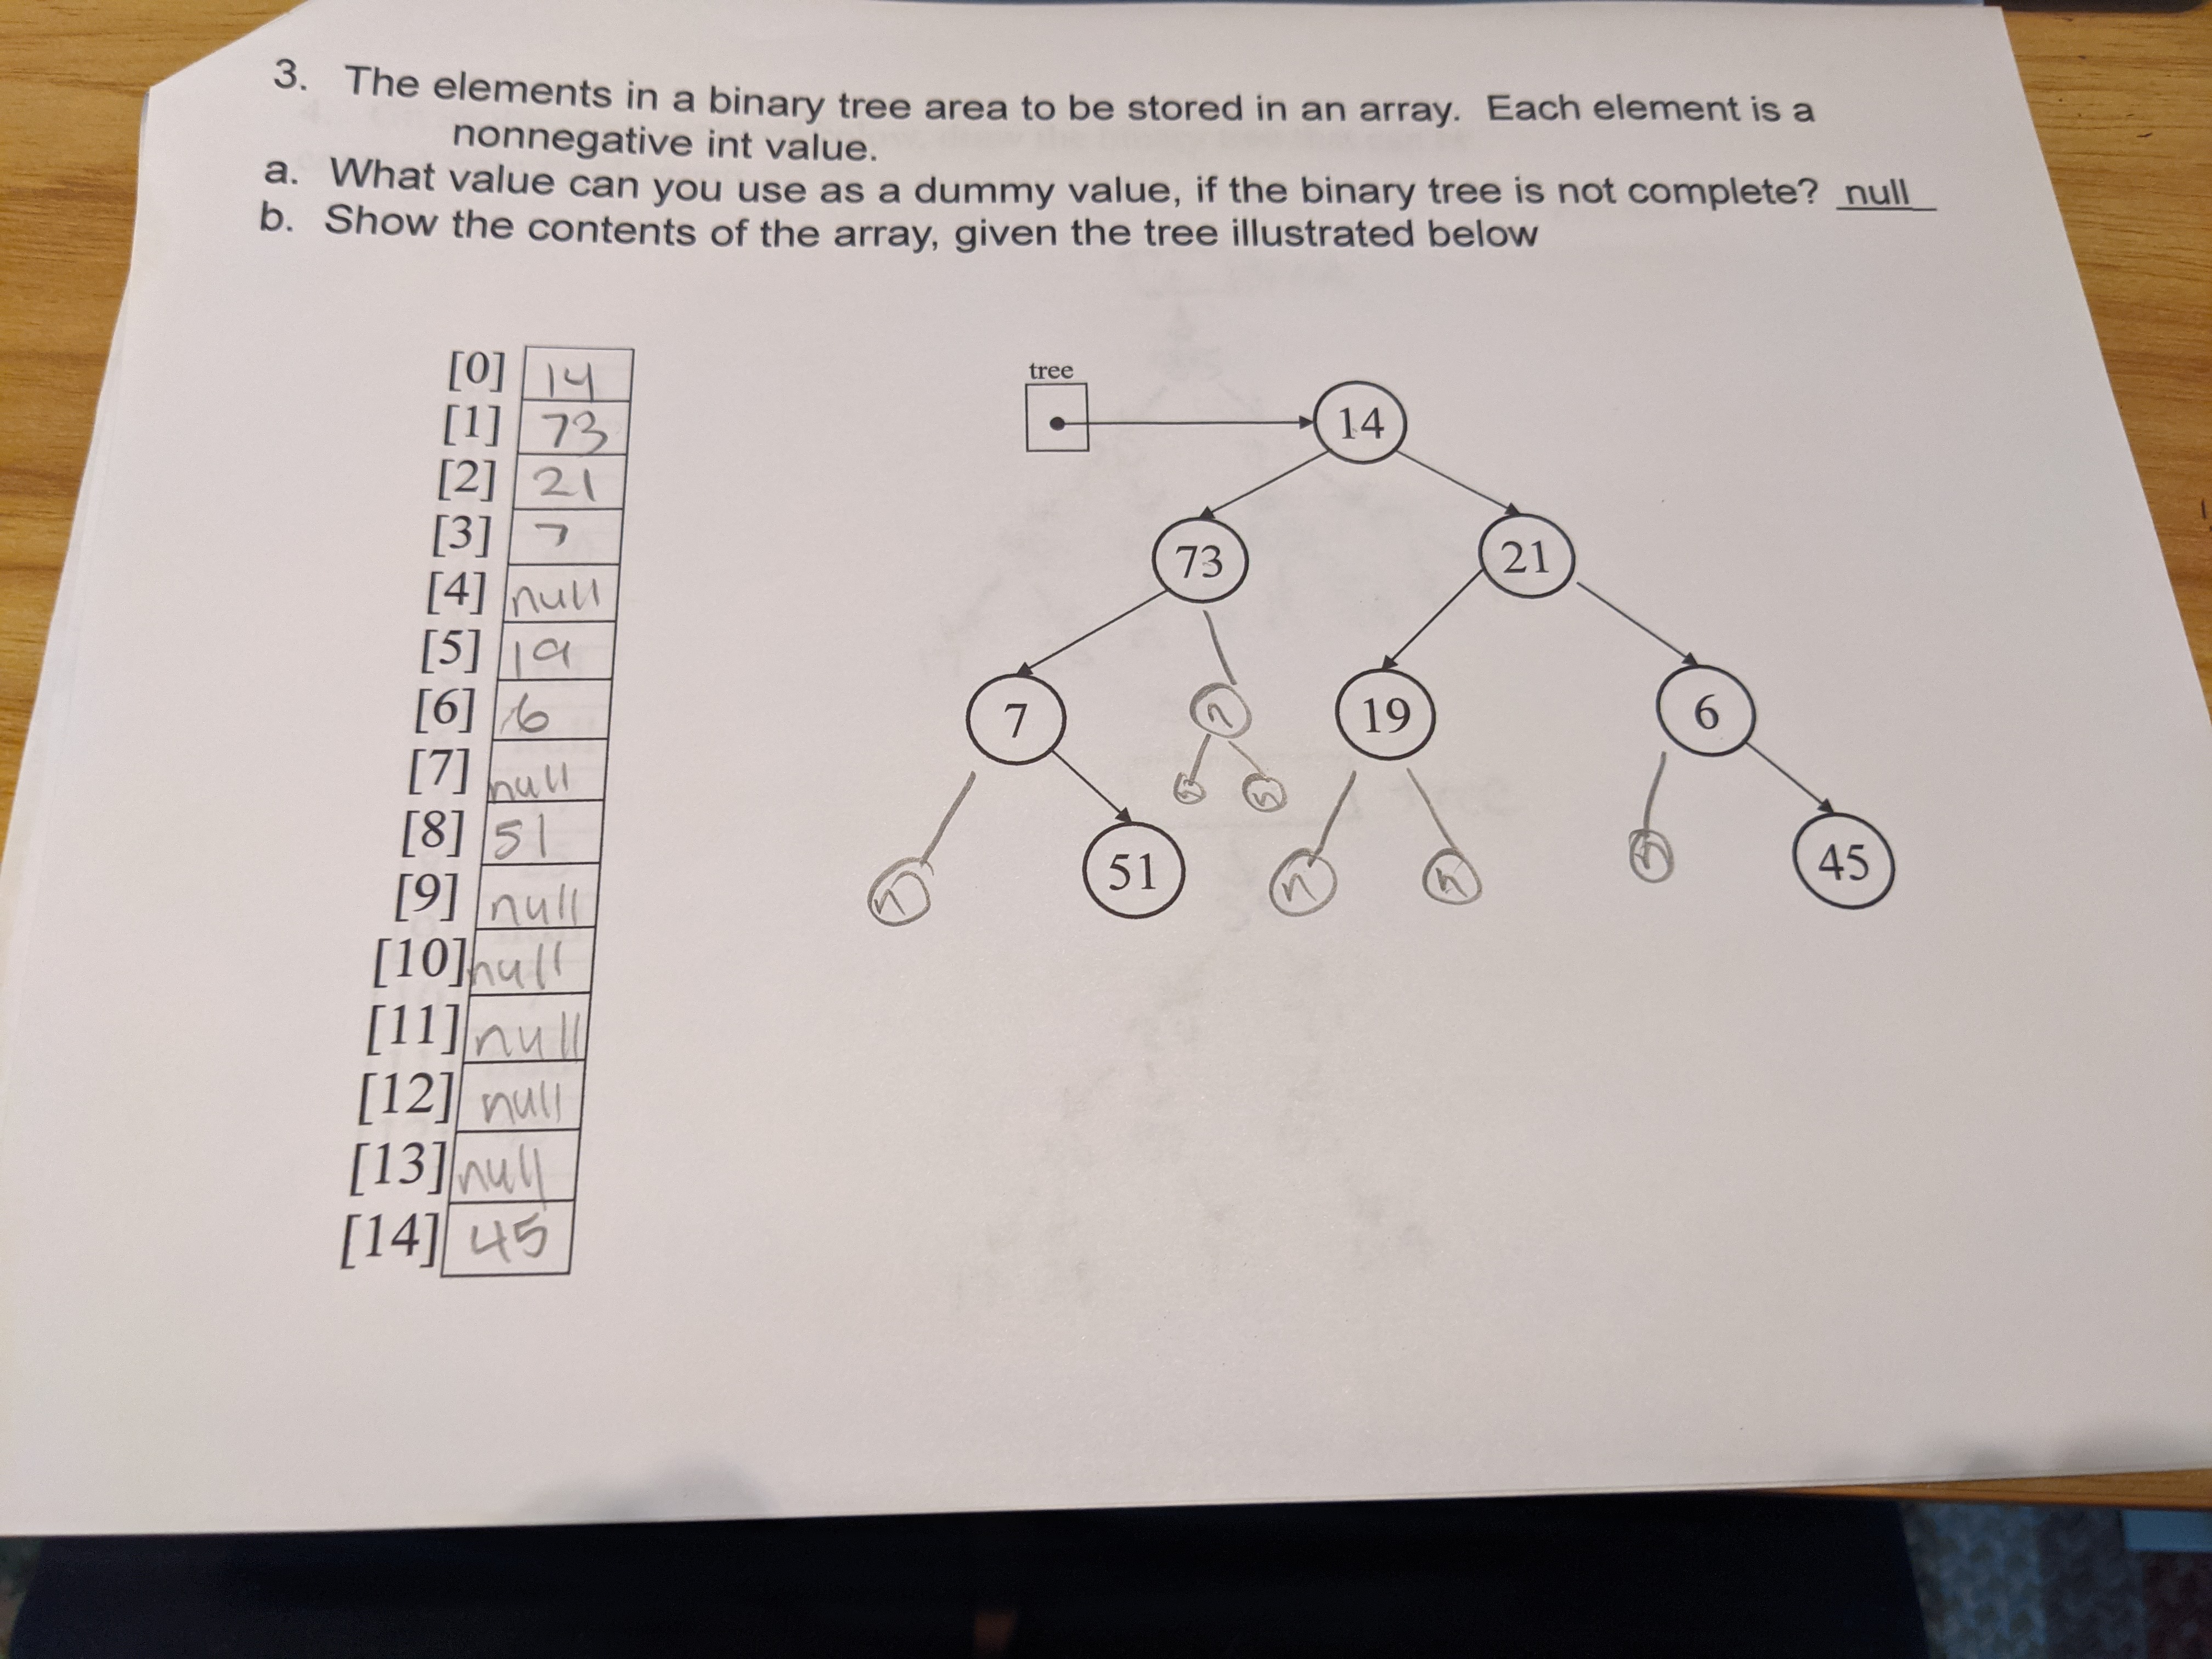 3. The elements in a binary tree area to be stored in an array. Each element is a
nonnegative int value.
a. What value can you use as a dummy value, if the binary tree is not complete? null
b. Show the contents of the array, given the tree illustrated below
[0] 14
[1] 73
[2] 21
[3] 7
[4] null
[5] 19
[6] 6
[7] null
[8] 51
[9] null
[10] null
[11] null
[12] null
[13] null
[14] 45
tree
14
73 21
7 n 19 6
n n
n 51 n n n 45